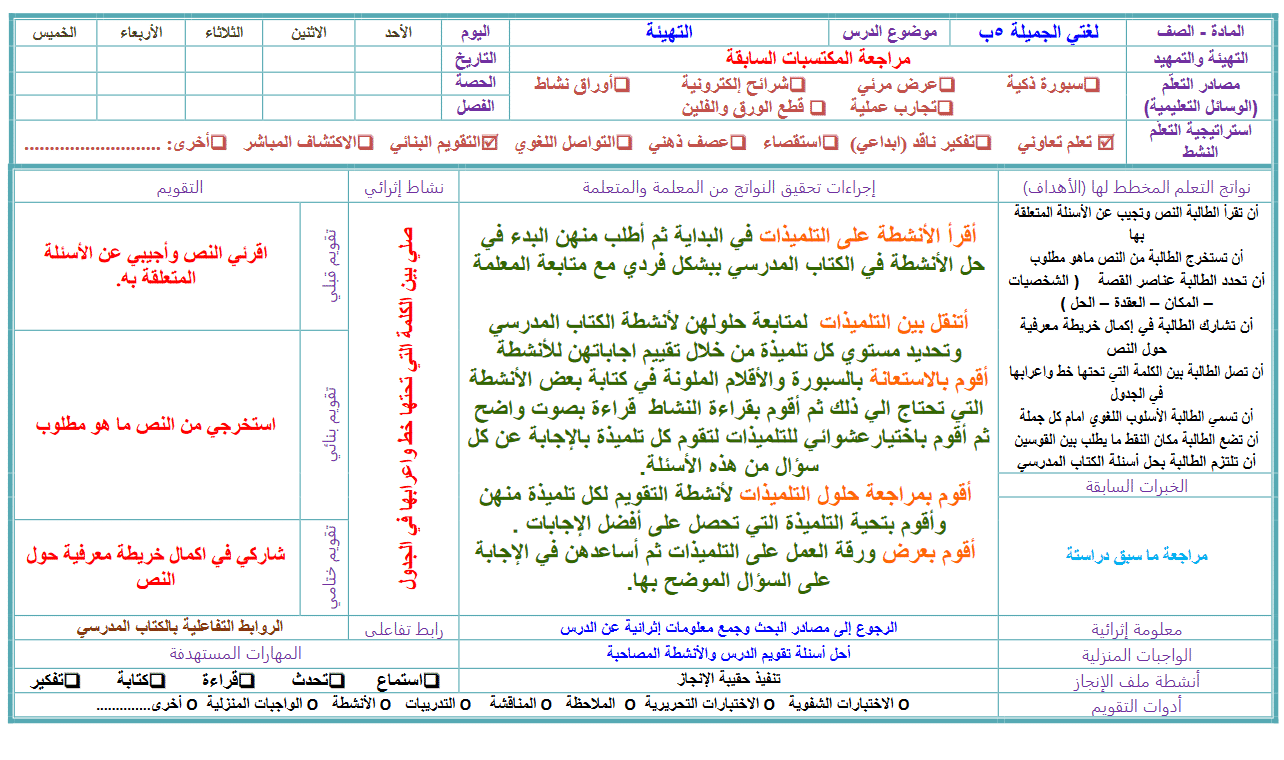 المادة - الصف لغتي الجميلة ٥ب موضوع الدرس التهيئة اليوم الأحد الاثنين الثلاثاء الأربعاء الخميس
التهيئة والتمهيد مراجعة المكتسبات السابقة التاريخ
مصادر التعلّم ❑سبورة ذكية ❑عرض مرئي ❑شرائح إلكترونية ❑أوراق نشاط الحصة
(الوسائل التعليمية) ❑تجارب عملية ❑ قطع الورق والفلين الفصل
استراتيجية التعلّم
النشط
☑ تعلم تعاوني ❑تفكير ناقد (ابداعي) ❑استقصاء ❑عصف ذهني ❑التواصل اللغوي ☑التقويم البنائي ❑الاكتشاف المباشر ❑أخرى: ...........................
نواتج التعلم المخطط لها (الأهداف) إجراءات تحقيق النواتج من المعلمة والمتعلمة نشاط إثرائي التقويم
أن تقرأ الطالبة النص وتجيب عن الأسئلة المتعلقة
بها
أن تستخرج الطالبة من النص ماهو مطلوب
أن تحدد الطالبة عناصر القصة ( الشخصيات
– المكان – العقدة – الحل )
أن تشارك الطالبة في إكمال خريطة معرفية
حول النص
أن تصل الطالبة بين الكلمة التي تحتها خط واعرابها
في الجدول
أن تسمي الطالبة الأسلوب اللغوي امام كل جملة
أن تضع الطالبة مكان النقط ما يطلب بين القوسين
أن تلتزم الطالبة بحل أسئلة الكتاب المدرسي
الخبرات السابقة
مراجعة ما سبق دراستة
أقرأ الأنشطة على التلميذات في البداية ثم أطلب منهن البدء في
حل الأنشطة في الكتاب المدرسي ببشكل فردي مع متابعة المعلمة
أتنقل بين التلميذات لمتابعة حلولهن لأنشطة الكتاب المدرسي
وتحديد مستوي كل تلميذة من خلال تقييم اجاباتهن للأنشطة
أقوم بالاستعانة بالسبورة والأقلام الملونة في كتابة بعض الأنشطة
التي تحتاج الي ذلك ثم أقوم بقراءة النشاط قراءة بصوت واضح
ثم أقوم باختيارعشوائي للتلميذات لتقوم كل تلميذة بالإجابة عن كل
سؤال من هذه الأسئلة.
أقوم بمراجعة حلول التلميذات لأنشطة التقويم لكل تلميذة منهن
وأقوم بتحية التلميذة التي تحصل على أفضل الإجابات .
أقوم بعرض ورقة العمل على التلميذات ثم أساعدهن في الإجابة
على السؤال الموضح بها.
صلي بين الكلمة التي تحتها خط واعرابها في الجدول
تقويم قبلي
اقرئي النص وأجيبي عن الأسئلة
المتعلقة به.
تقويم بنائي
استخرجي من النص ما هو مطلوب
تقويم ختامي
شاركي في اكمال خريطة معرفية حول
النص
معلومة إثرائية الرجوع إلى مصادر البحث وجمع معلومات إثرائية عن الدرس رابط تفاعلى الروابط التفاعلية بالكتاب المدرسي
الواجبات المنزلية أحل أسئلة تقويم الدرس والأنشطة المصاحبة المهارات المستهدفة
أنشطة ملف الإنجاز تنفيذ حقيبة الإنجاز ❑استماع ❑تحدث ❑قراءة ❑كتابة ❑تفكير
أدوات التقويم o الاختبارات الشفوية o الاختبارات التحريرية o الملاحظة o المناقشة o التدريبات o الأنشطة o الواجبات المنزلية o أخرى..............